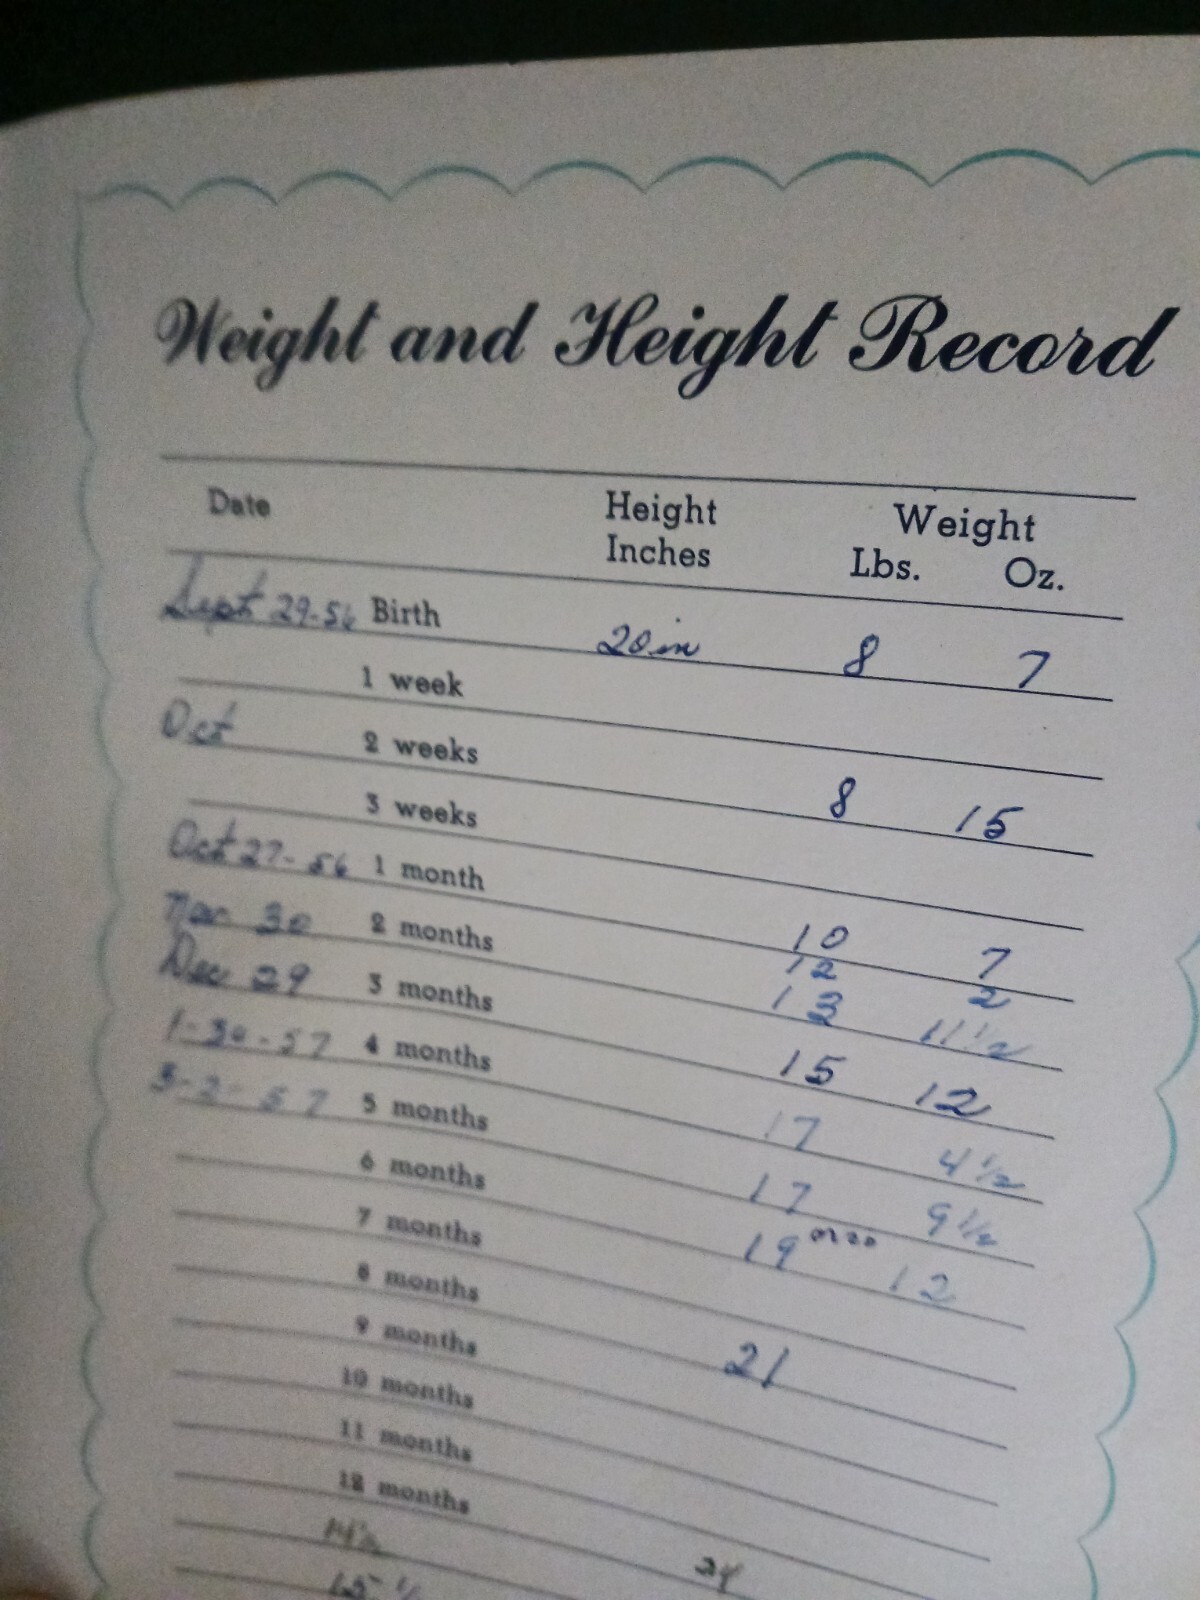 Weight and Height Record
Date Height Inches Weight Lbs. Oz.
Sept 29-56 Birth 20 in 8 7
1 week
Oct 2 weeks 8 15
3 weeks
Oct 27-56 1 month 10 7
12 2
Nov 30 2 months 13 11 1/2
Dec 29 3 months 15 12
1-30-57 4 months 17 4 1/2
3-2-57 5 months 17 9 1/2
6 months 19 or 20 12
7 months
8 months 21
9 months
10 months
11 months
12 months 24